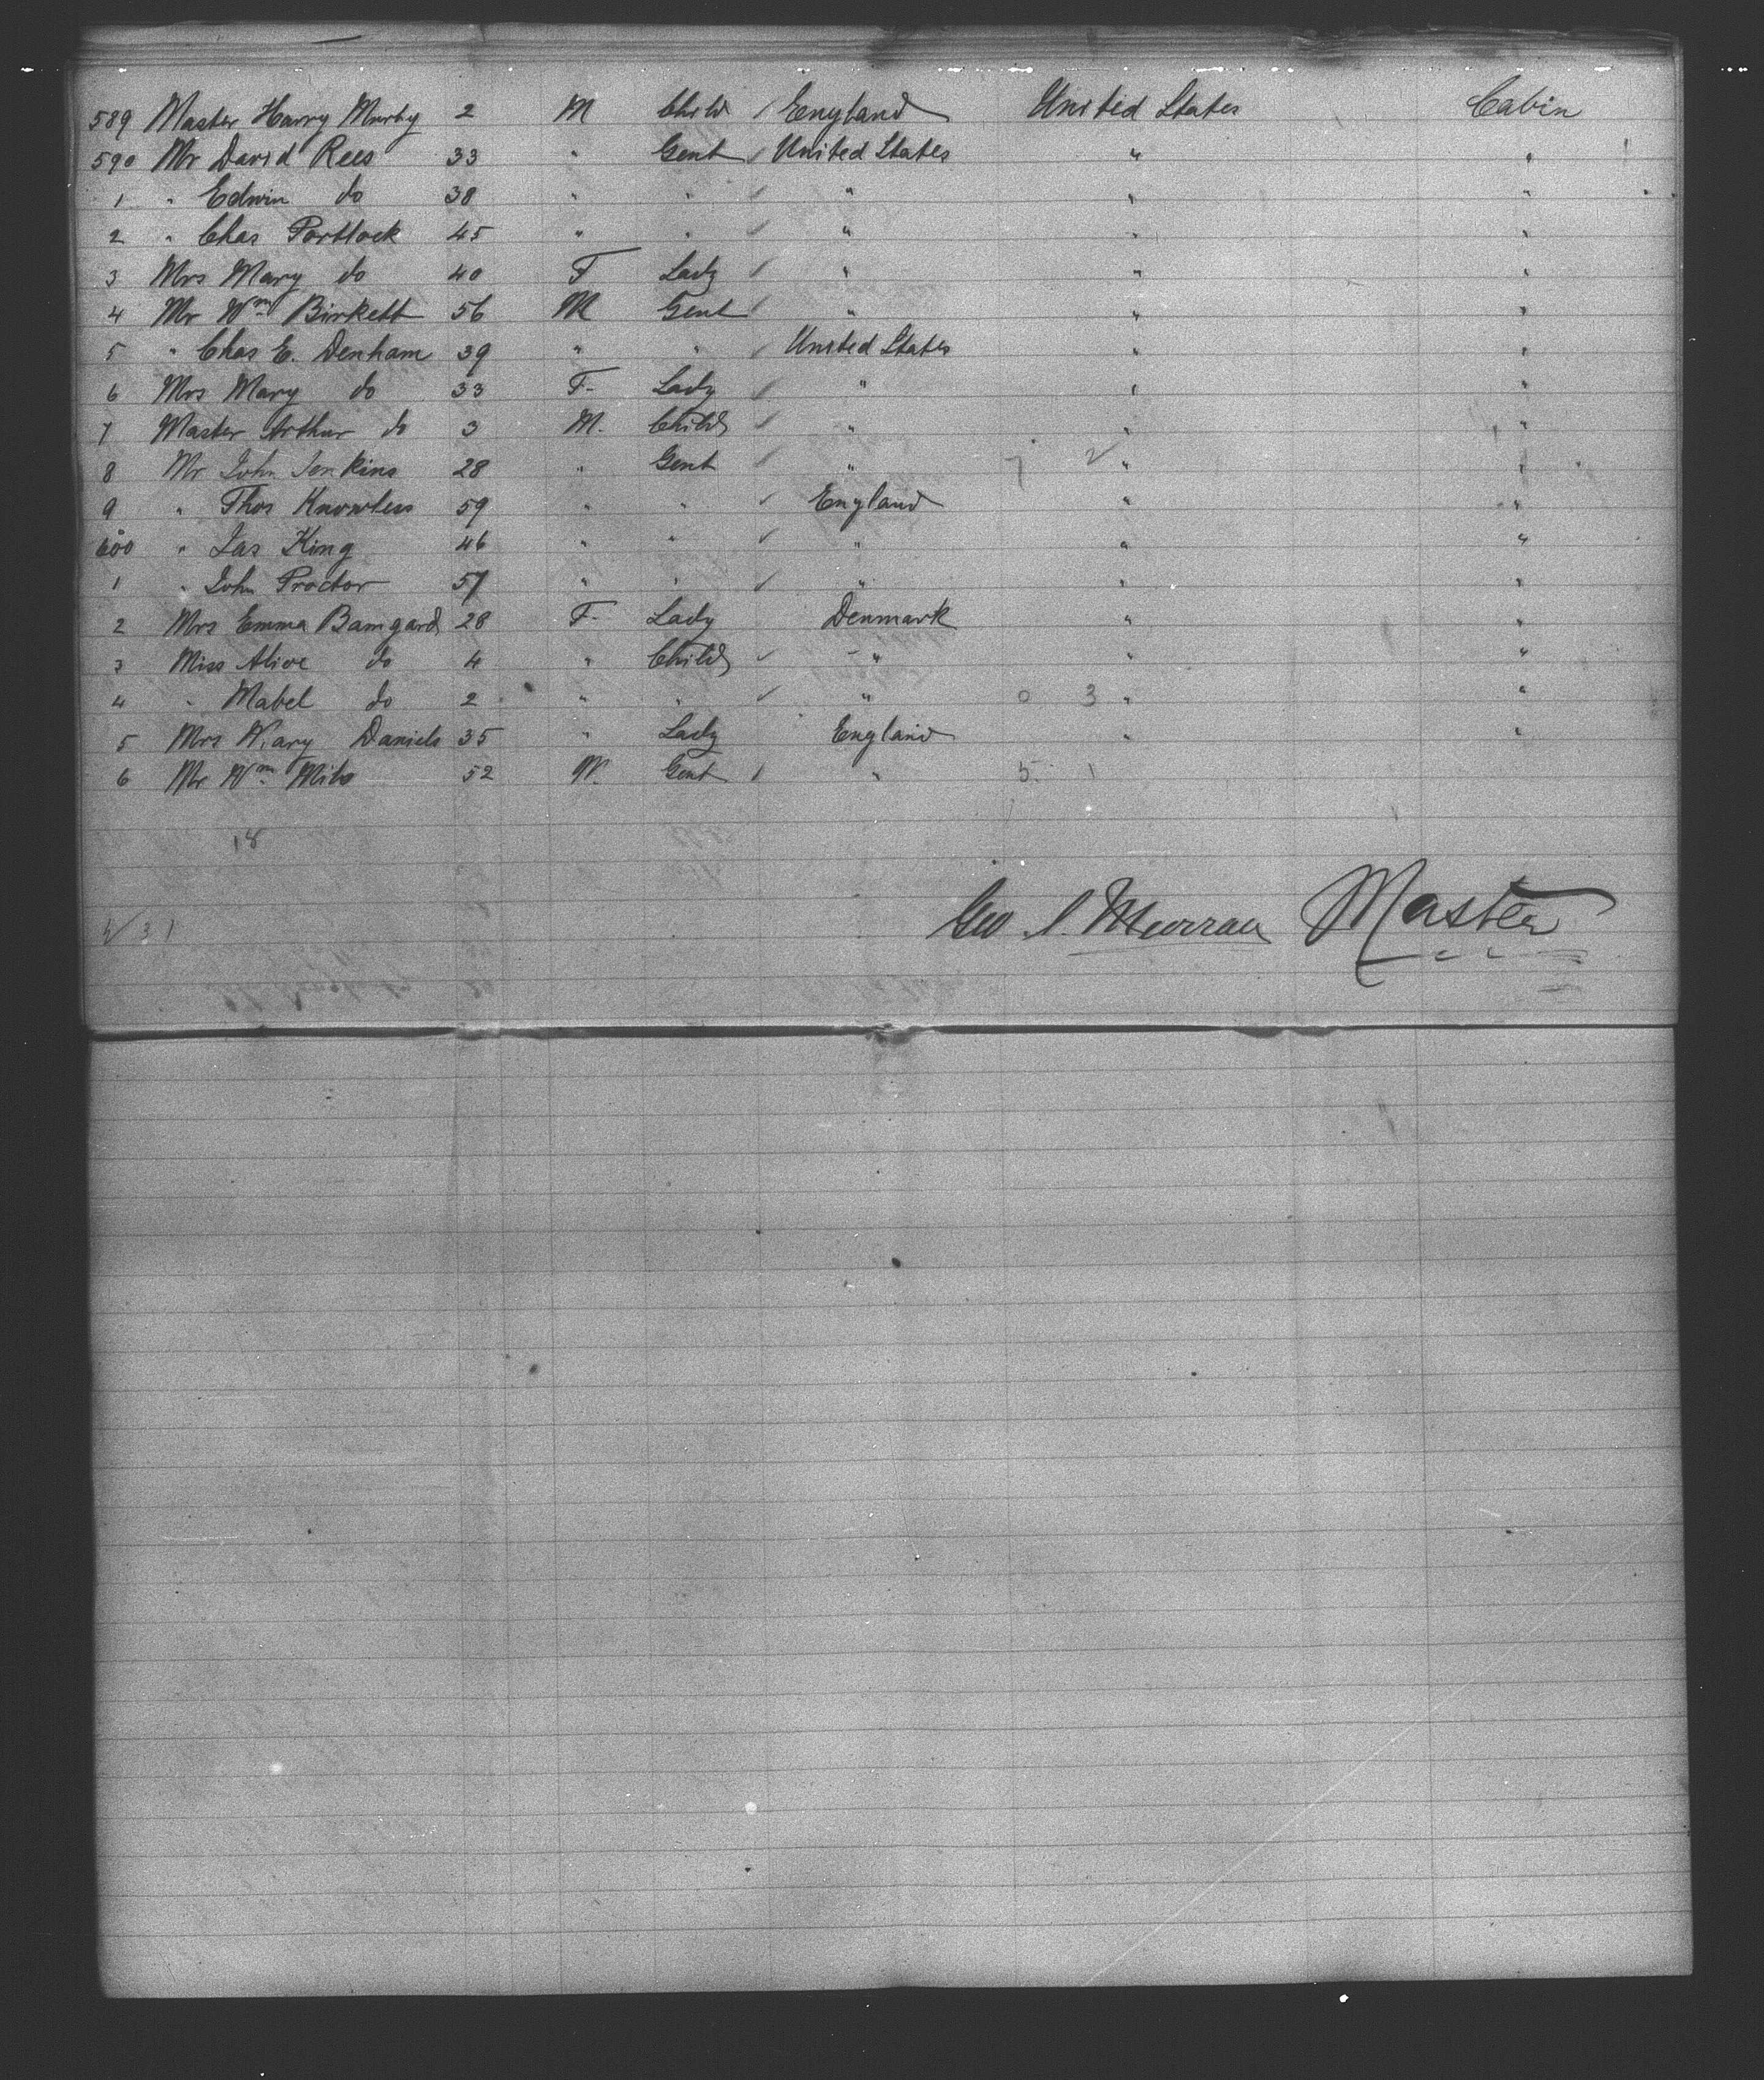 589 Master Harry Murby 2 M Child ✓ England United States Cabin
590 Mr David Rees 33 " Gent ✓ United States " "
1 " Edwin do 38 " " ✓ " " "
2 " Chas Portlock 45 " " ✓ " " "
3 Mrs Mary do 40 F Lady ✓ " " "
4 Mr Wm Birkett 56 M Gent ✓ " " "
5 " Chas E. Denham 39 " " ✓ United States " "
6 Mrs Mary do 33 F- Lady ✓ " " "
7 Master Arthur do 3 M. Child ✓ " " "
8 Mr John Jenkins 28 " Gent ✓ " 7 2 " "
9 " Thos Knowless 59 " " ✓ England " "
600 " Jas King 46 " " ✓ " " "
1 " John Proctor 57 " " ✓ " " "
2 Mrs Emma Bamgard 28 F- Lady Denmark " "
3 Miss Alice do 4 " Child ✓ " " "
4 " Mabel do 2 " " ✓ " 0 3 " "
5 Mrs Mary Daniels 35 " Lady England " "
6 Mr Wm 52 M. Gent ✓ " 5 1
18
Geo. S. Murray Master
31